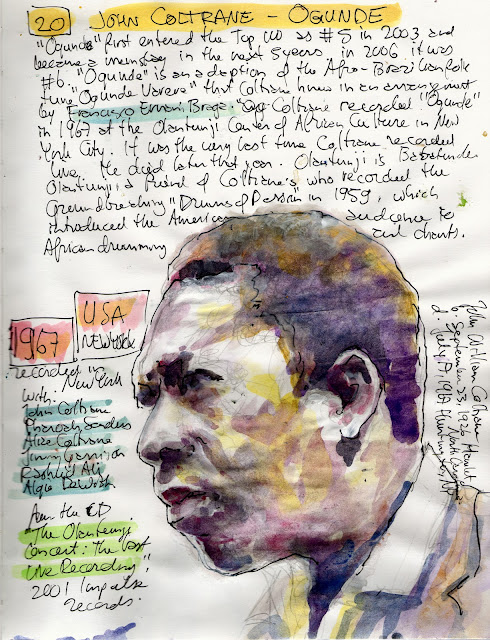 20 JOHN COLTRANE - OGUNDE
"Ogunde" first entered the Top 100 as #5 in 2003 and
became a mainstay in the next 5 years in 2006 it was
#6. "Ogunde" is an adaption of the Afro-Brazilian folk
tune "Ogunde Varere" that Coltrane knew in an arrangement
by Francisco Ernani Braga. Coltrane recorded "Ogunde"
in 1967 at the Olantunji Center of African Culture in New
York City. It was the very last time Coltrane recorded
live. He died later that year. Olantunji is Babatunde
Olantunji a friend of Coltrane's who recorded the
Groundbreaking "Drums of Passion" in 1959, which
introduced the American audience to
African drumming and chants.
1967
USA
NEW YORK
recorded in
New York
with:
John Coltrane
Pharoah Sanders
Alice Coltrane
Jimmy Garrison
Rashied Ali
Algie DeWitt
from the CD
"The Olantunji
Concert: The Last
Live Recording"
2001 Impulse
records.
John William Coltrane
b. September 23, 1926 Hamlet
North Carolina
d. July 17, 1967 Huntington, NY